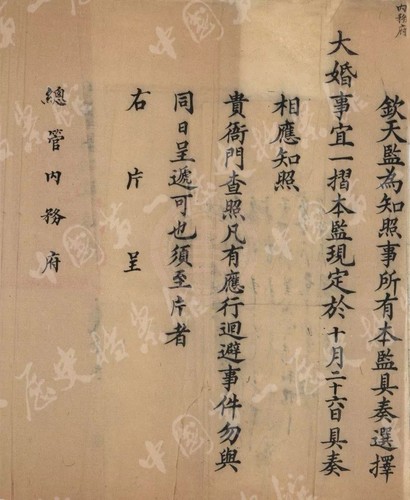 内務府
欽天監為知照事所有本監具奏選擇
大婚事宜一摺本監現定於十月二十六日具奏
相應知照
貴衙門查照凡有應行迴避事件勿與
同日呈遞可也須至片者
右片呈
總管内務府
中国第一历史档案馆